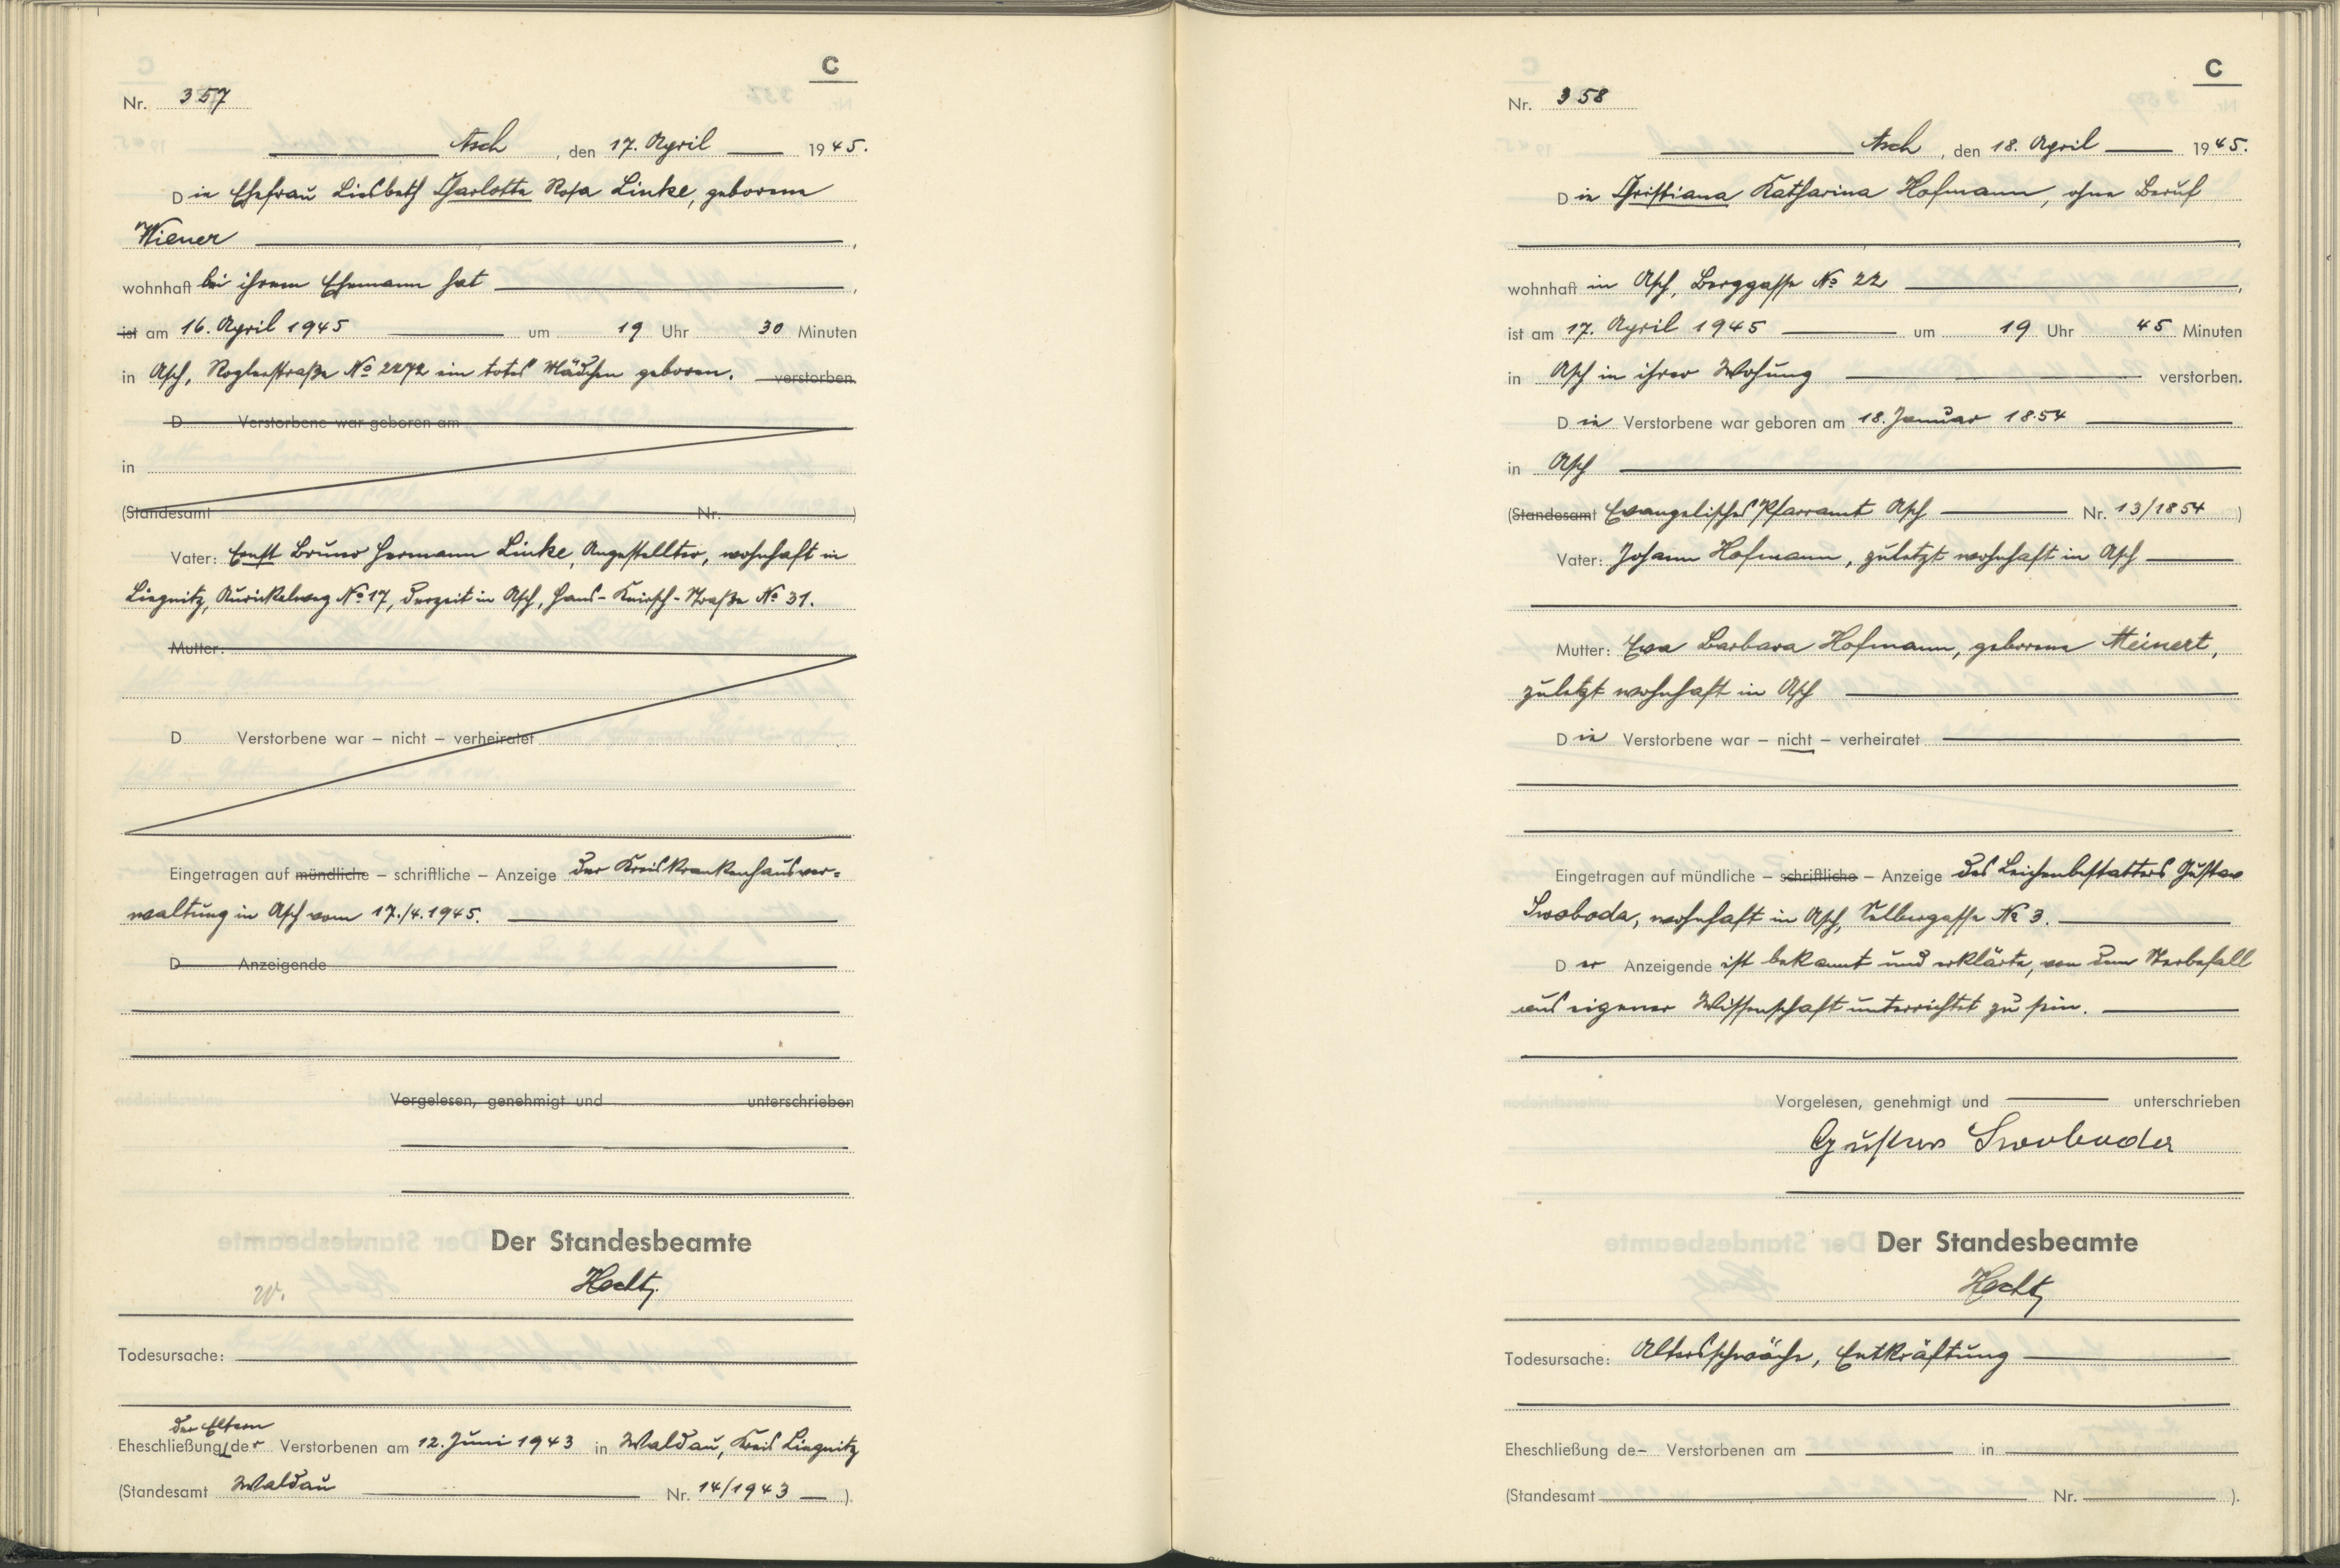 C
Nr. 357
Asch, den 17. April 1945.
Die Ehefrau Liesbeth Charlotte Rosa Linke, geborene
Wiener,
wohnhaft bei ihrem Ehemann hat,
ist am 16. April 1945 um 19 Uhr 30 Minuten
in Asch, Roglerstraße No 2272 ein totes Mädchen geboren. verstorben.
D Verstorbene war geboren am
in
(Standesamt Nr. )
Vater: Ernst Bruno Hermann Linke, Angestellter, wohnhaft in
Liegnitz, Aurikelweg No 17, derzeit in Asch, Hans-Knirsch-Straße No 31.
Mutter:
D Verstorbene war – nicht – verheiratet
Eingetragen auf mündliche – schriftliche – Anzeige der Kreiskrankenhausver-
waltung in Asch vom 17./4.1945.
D Anzeigende
Vorgelesen, genehmigt und unterschrieben
Der Standesbeamte
Hecht
Todesursache:
der Eltern
Eheschließung der Verstorbenen am 12. Juni 1943 in Waldau, Kreis Liegnitz
(Standesamt Waldau Nr. 14/1943 ).
C
Nr. 358
Asch, den 18. April 1945.
Die Christiana Katharina Hofmann, ohne Beruf
,
wohnhaft in Asch, Berggasse No 22,
ist am 17. April 1945 um 19 Uhr 45 Minuten
in Asch in ihrer Wohung verstorben.
Die Verstorbene war geboren am 18. Januar 1854
in Asch
(Standesamt Evangelisches Pfarramt Asch Nr. 13/1854 )
Vater: Johann Hofmann, zuletzt wohnhaft in Asch
Mutter: Eva Barbara Hofmann, geborene Meinert,
zuletzt wohnhaft in Asch
Die Verstorbene war – nicht – verheiratet
Eingetragen auf mündliche – schriftliche – Anzeige des Leichenbestatters Gustav
Swoboda, wohnhaft in Asch, Selbergasse No 3.
Der Anzeigende ist bekannt und erklärte, von dem Sterbefall
aus eigener Wissenschaft unterrichtet zu sein.
Vorgelesen, genehmigt und unterschrieben
Gustav Swoboda
Der Standesbeamte
Hecht
Todesursache: Altersschwäche, Entkräftung
Eheschließung de– Verstorbenen am in
(Standesamt Nr. ).